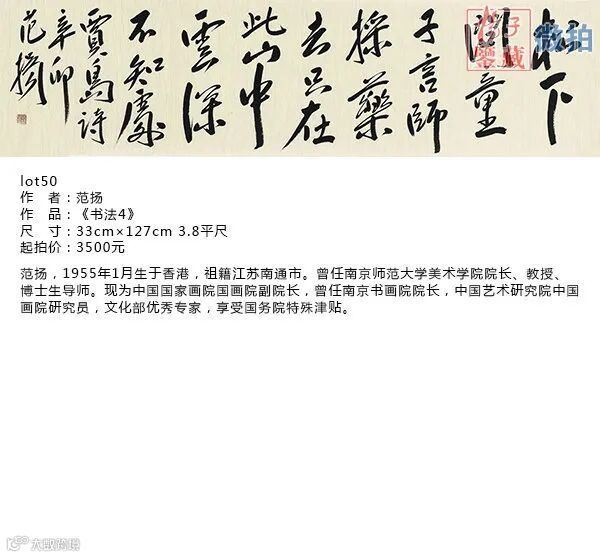 松下
問童
子言師
採藥
去只在
此山中
雲深
不知處
賈島詩
辛卯
范揚
微拍
lot50
作　者：范扬
作　品：《书法4》
尺　寸：33cm×127cm 3.8平尺
起拍价：3500元
范扬，1955年1月生于香港，祖籍江苏南通市。曾任南京师范大学美术学院院长、教授、
博士生导师。现为中国国家画院国画院副院长，曾任南京书画院院长，中国艺术研究院中国
画院研究员，文化部优秀专家，享受国务院特殊津贴。
大数跨境